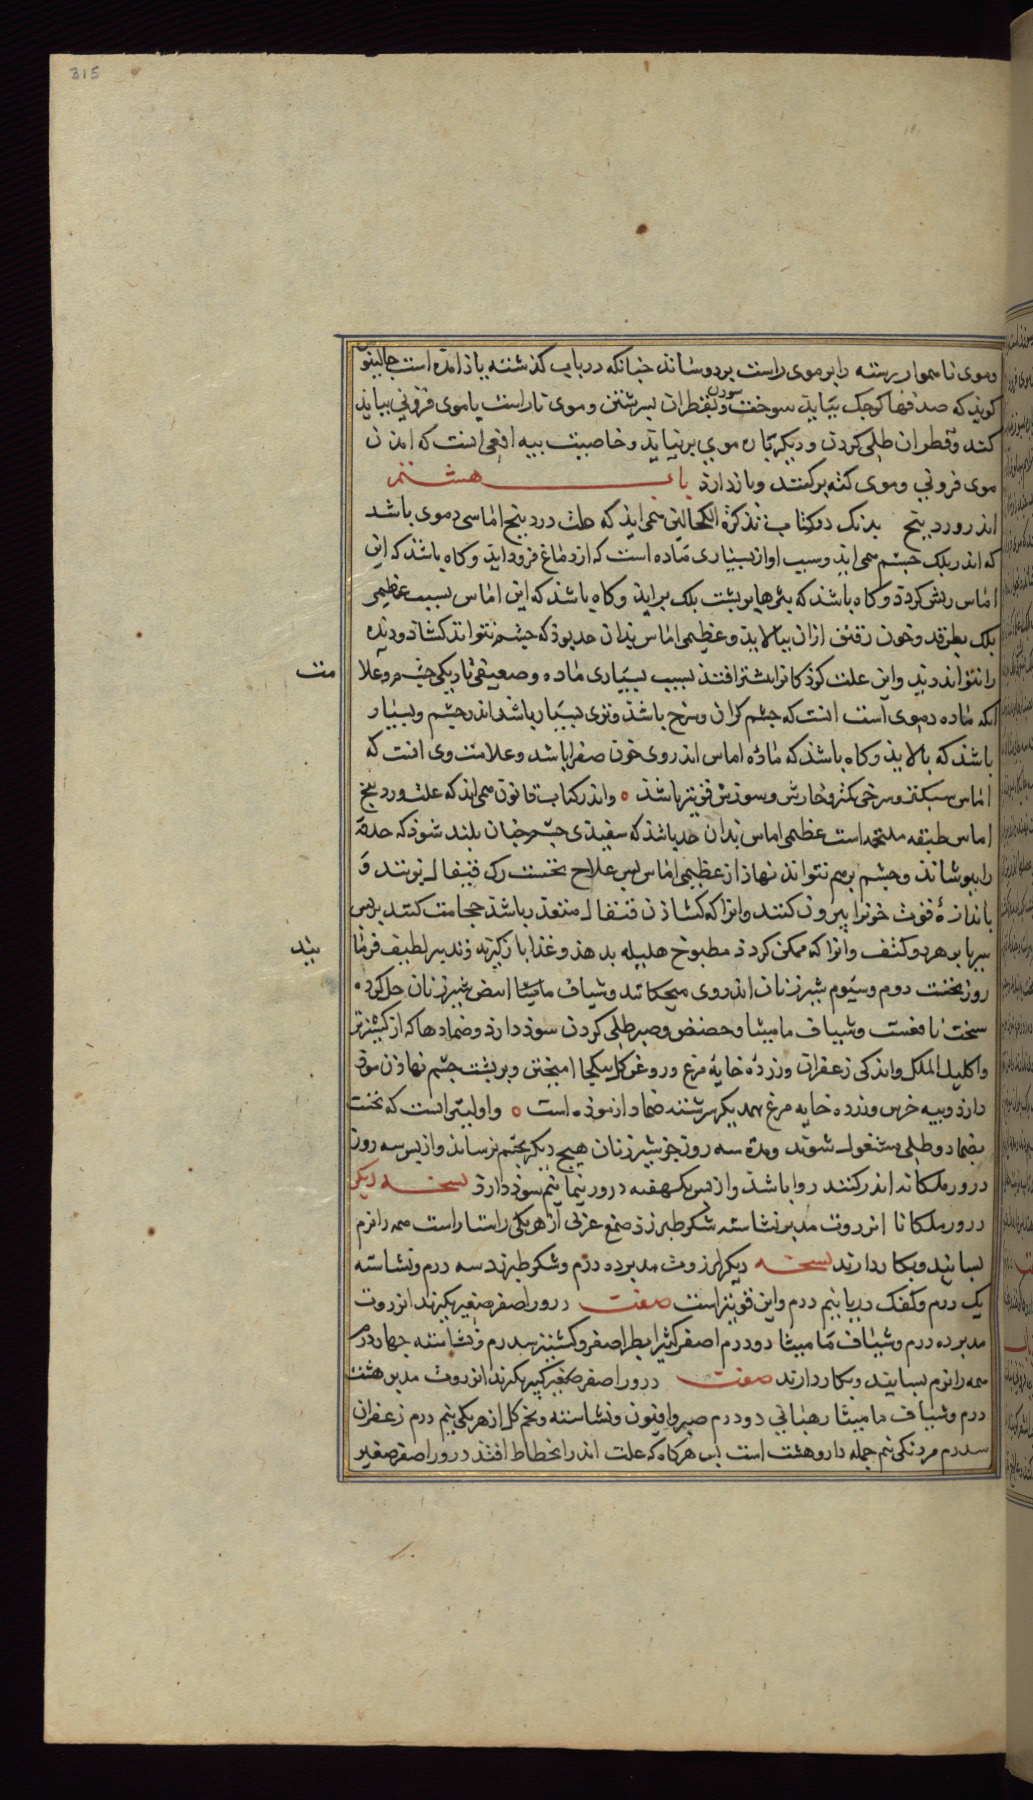 315
وموی ناهموار رسته را بر موی راست بردوسانند چنانکه در باب کذشته یاذ آمده است جالینوس
کویذ که صدفها کوجک بباید سوخت وسودن وبقطران بسرشتن و موی تا راست یا موی فزونی بباید
کند وقطران طلی کردن و دیکرباره موی برنیاید و خاصیت بیه افعی انست که امدن
موی فزونی وموی کنده برکنند وبازدارذ باب هشتم
اندر وردینج بدنک در کتاب تذکرة الکحالین می ایذ که علت وردینج اماسی دموی باشد
که اندر بلک چشم می اید وسبب او از بسیاری ماده است که از دماغ فروداید و کاه باشد که این
اماس ریش کردد و کاه باشد که بثرها بر بشت بلک براید و کاه باشد که این اماس بسبب عظیمی
بلک بطرقد وخون رقیق از ان ببالاید وعظیمی اماس بدان حد بوذ که چشم نتواند کشاد ودیده
را نتواند دید واین علت کوذکانرا بیشتر افتد بسبب بسیاری ماده وضعیفی تاریکی چشم وعلا
مت
آنکه ماده دموی است انست که چشم کران وسرخ باشد وتری بسیار باشد اندر چشم وبسیار
باشد که بالایذ وکاه باشد که ماده اماس اندروی خون صفرا باشد وعلامت وی انست که
اماس سبکتر وسرخی کمتر وخارش وسوزش قویتر باشد ه واندر کتاب قانون می ایذ که علت وردینج
اماس طبقه ملتحمه است عظیمی اماس بدان حد باشد که سفیذی چشم جنان بلند شوذ که حدقه
را ببوشاند وچشم برهم نتواند نهاذ از عظیمی اماس بس علاج نخست رک قیفال بزنند و
باندازهٔ قوت خونرا بیرون کنند وانرا که کشاذن قیفال متعذر باشد حجامت کنند بربس
سر یا بر هر دو کتف وانرا که ممکن کردد مطبوخ هلیله بدهند وغذا بازکیرند وتدبیر لطیف فرما
یند
روز نخست دوم وسیوم شیر زنان اندروی میچکانند وشیاف مامیثا ابیض بشیر زنان حل کرده
سخت نافعست وشیاف مامیثا وحضض وصبر طلی کردن سوذ دارذ وضمادها که از کشنیز تر
واکلیل الملک واندکی زعفران وزرده خایه مرغ وروغن کل بیکجا امیختن وبر بشت چشم نهاذن سوذ
دارذ وبیه خرس وزرده خایه مرغ بهمدیکر سرشته ضماد ازموده است ه واولیتر انست که نخست
بضماد وطلی مشغول شوند ومدة سه روز جز شیر زنان هیچ دیکر بچشم نرسانند واز بس سه روز
درور ملکانه اندر کنند روا باشد واز بس یکهفته درور نیمانیم سوذ دارذ نسخه دیکر
درور ملکانا انزروت مدبر نشاسته شکر طبرزذ صمغ عربی از هر یکی راستاراست همه را نرم
بسایند وبکار دارند نسخه دیکر انزروت مدبر ده درم وشکر طبرزد سه درم ونشاسته
یک درم وکفک دریا نیم درم واین قویتر است صفت درور اصفر صغیر بکیرند انزروت
مدبر ده درم وشیاف مامیثا دو درم اصفر کثیرا بطر اصفر وکشنیز سدرم ونشاسته جهاردرم
همه را نرم بسایند وبکار دارند صفت درور اصفر کبیر بکیرند انزروت مدبر هشت
درم وشیاف مامیثا رهبانی دو درم صبر وافیون ونشاسته وتخم کل از هر یکی نیم درم زعفران
سدرم مر دنکی نیم جمله دارو هشت است بس هرکاه که علت اندر انحطاط افتذ درور اصفر صغیر